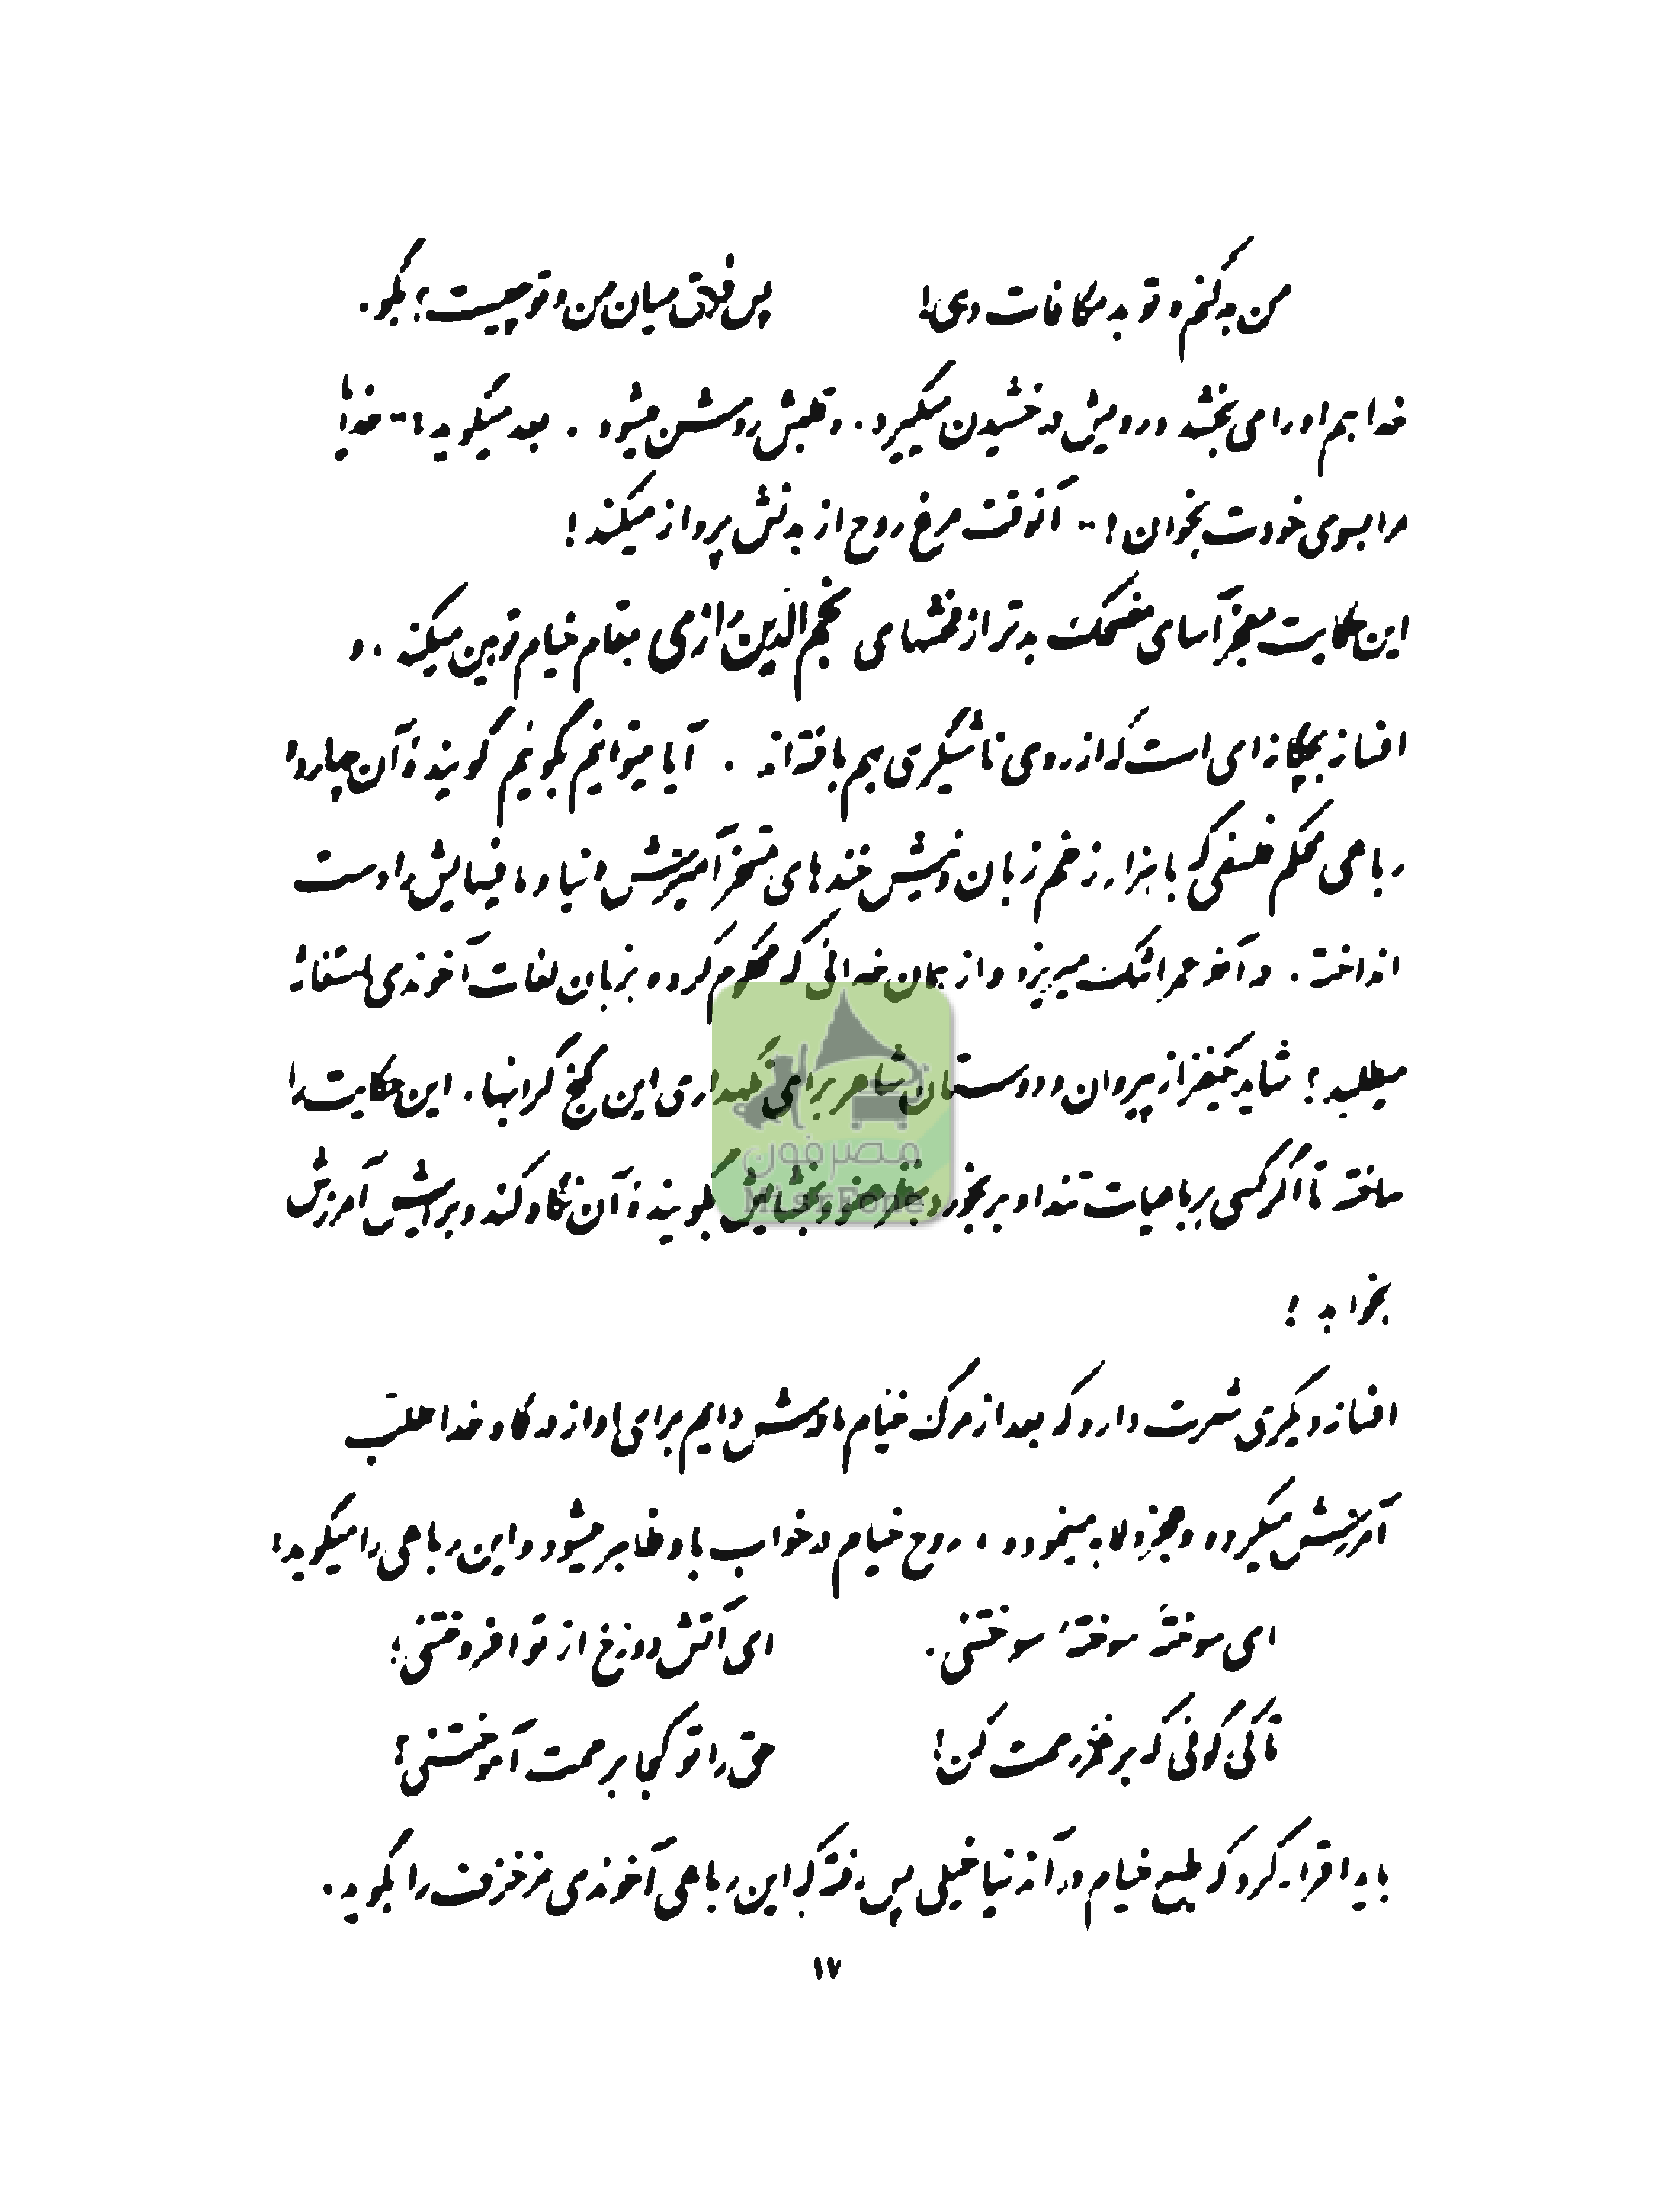 من بد کنم و تو بد مکافات دهی! پس فرق میان من و تو چیست؟ بگو.
خدا هم او را می‌بخشد و رویش درخشیدن میگیرد. و قلبش روشن میشود. بعد میگوید: - خدایا
مرا بسوی خودت بخوان! - آنوقت مرغ روح از بدنش پرواز میکند!
این حکایت معجز آسای مضحک بدتر از فحشهای نجم‌الدین رازی بمقام خیام توهین میکند. و
افسانه بچگانه‌ای است که از روی ناشیگری بهم بافته‌اند. آیا میتوانیم بگوئیم گویندهٔ آن چهارده
رباعی محکم فلسفی که با هزار زخم زبان و نیش خنده‌های تمسخر آمیزش دنیا و مافیهایش را دست
انداخته. در آخر عمر اشک میریزد و از همان خدائی که محکوم کرده بزبان لغات آخوندی استغاثه
میطلبد؟ شاید یکنفر از پیروان و دوستان شاعر برای نگهداری این گنج گرانبها. این حکایت را
ساخته تا اگر کسی برباعیات تند او بر بخورد بنظر عفو و بخشایش بگویندهٔ آن نگاه کند و برایش آمرزش
بخواهد!
افسانه دیگری شهرت دارد که بعد از مرگ خیام مادرش دایم برای او از درگاه خدا طلب
آمرزش میکرده و عجز و لابه مینموده، روح خیام در خواب باو ظاهر میشود و این رباعی را میگوید:
ای سوختهٔ سوختهٔ سوختنی. ای آتش دوزخ از تو افروختنی؛
تا کی گوئی که بر عمر رحمت کن! حق را تو کجا برحمت آموختنی؟
باید اقرار کرد که طبع خیام در آن دنیا خیلی پس رفته که این رباعی آخوندی مزخرف را بگوید.
۱۷
مصرفون
MisrFone